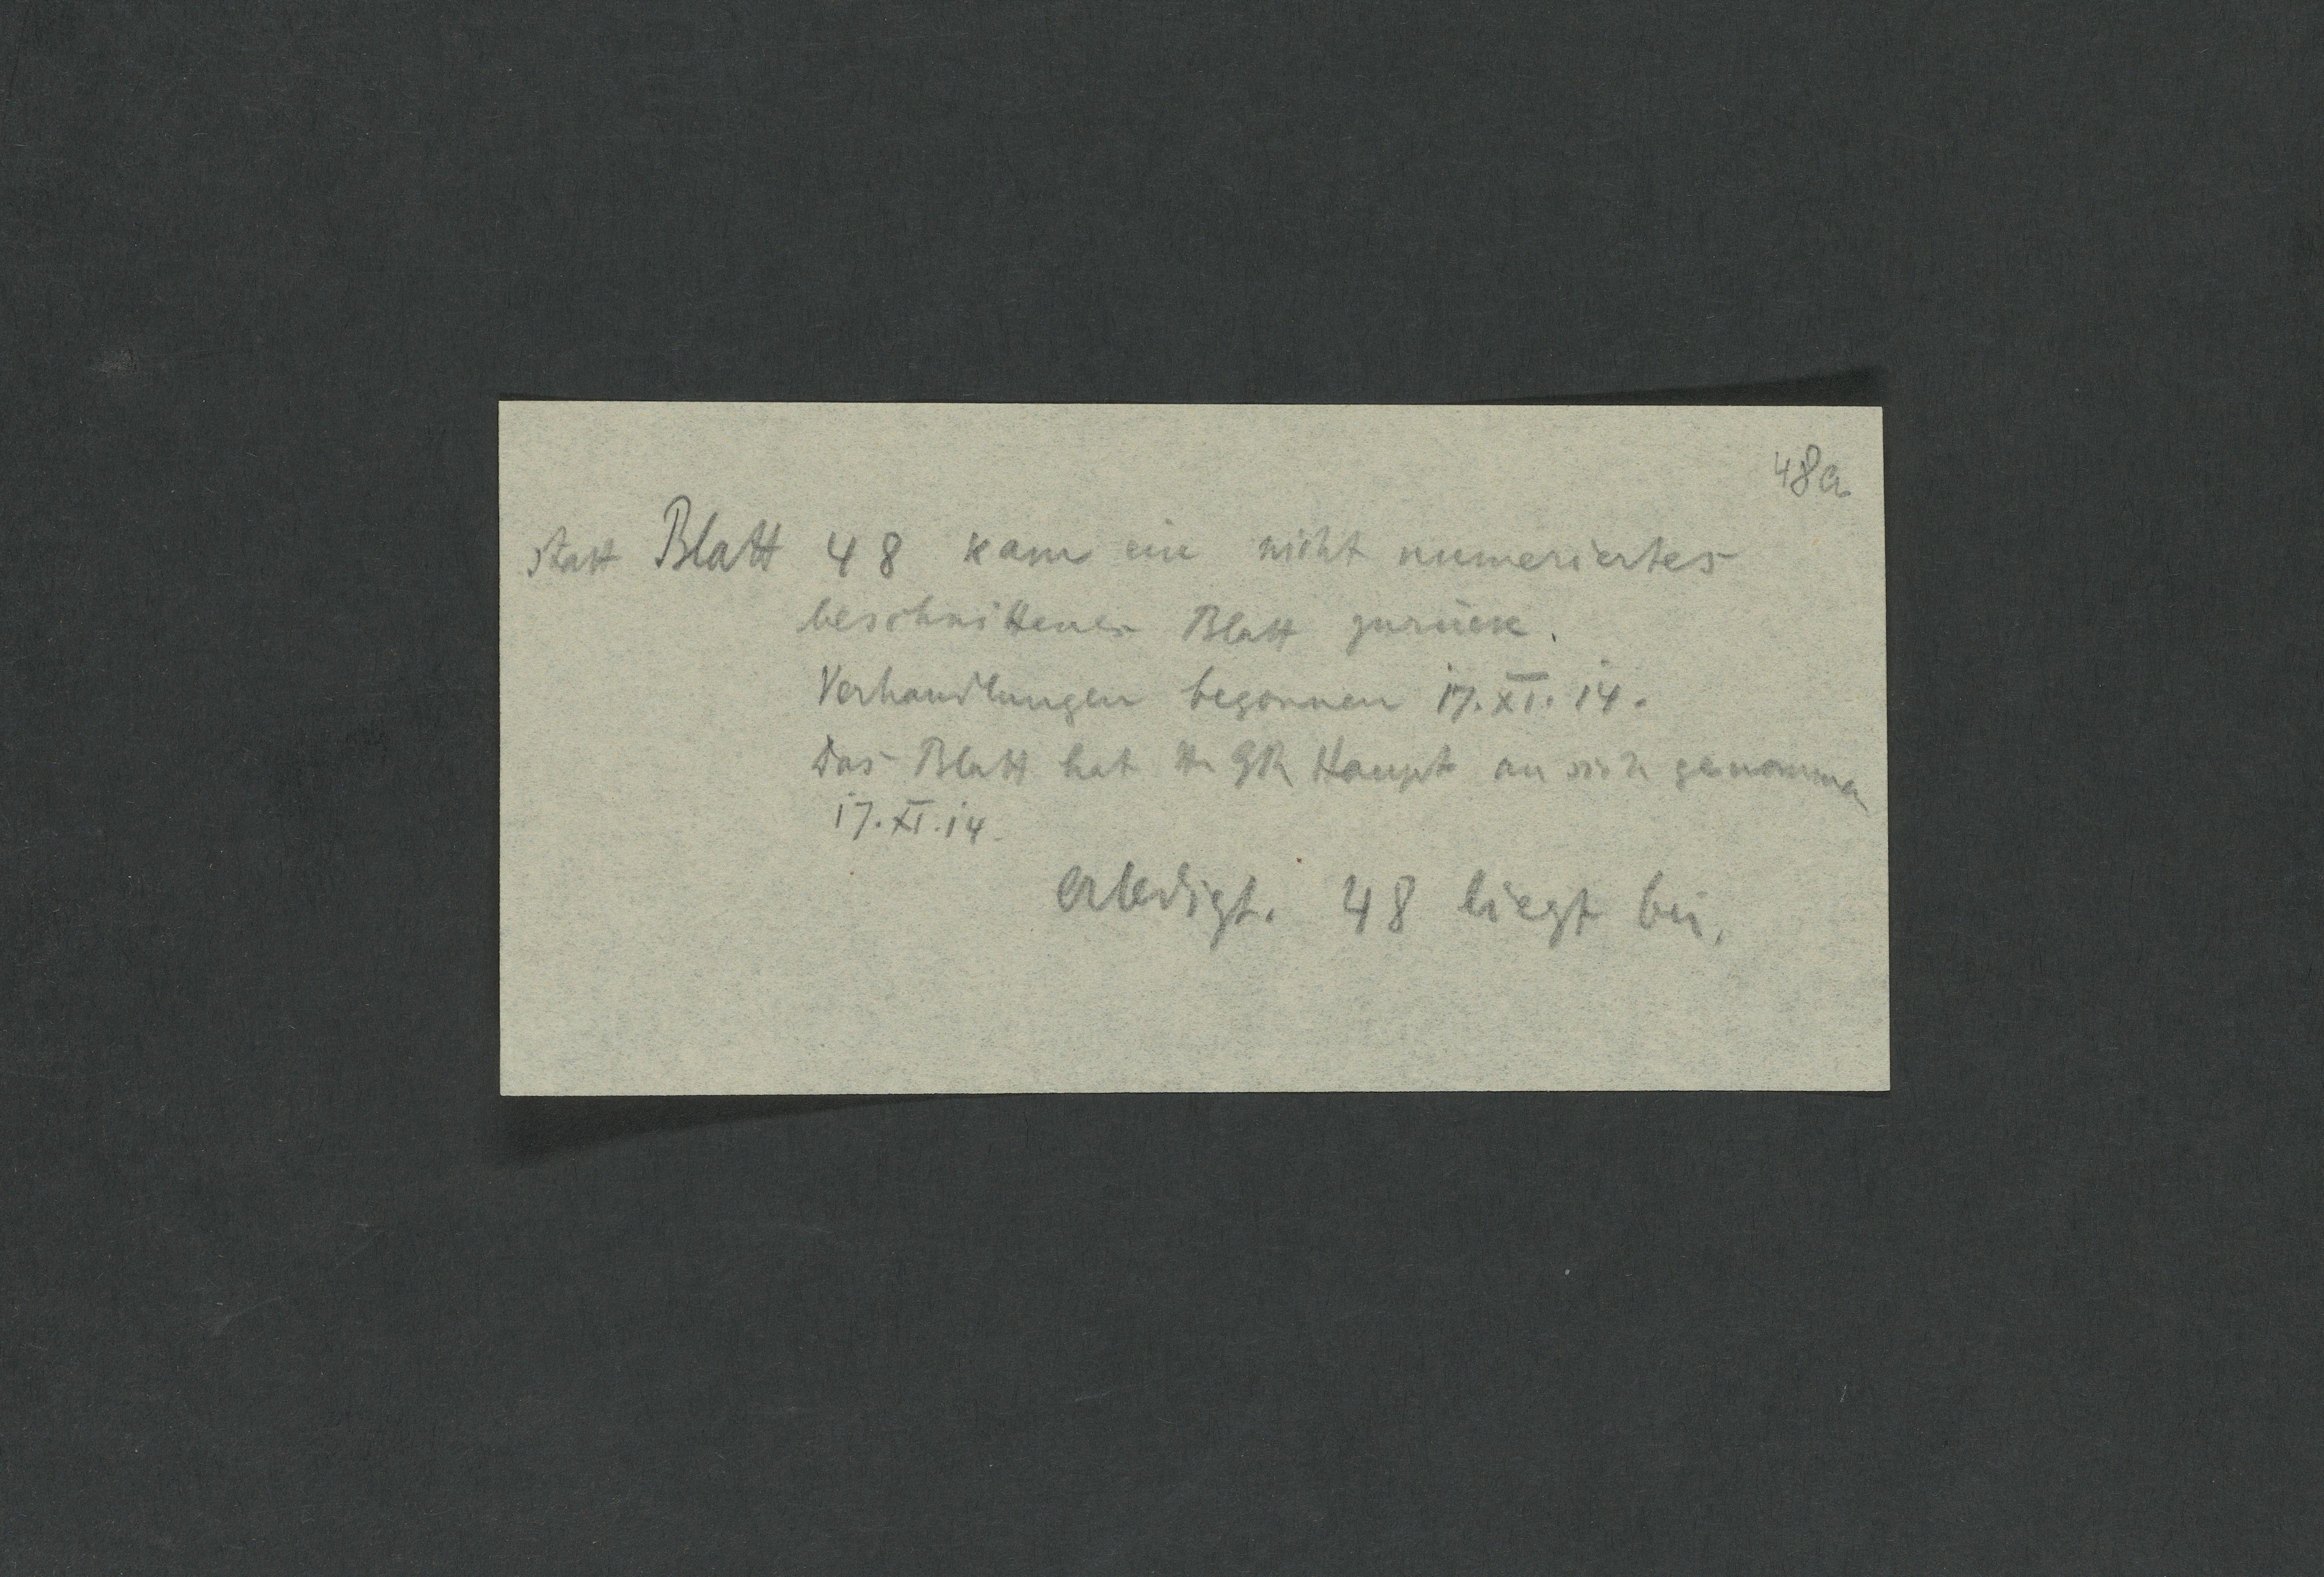 48a
statt Blatt 48 kam ein nicht numeriertes
beschnittenes Blatt zurück.
Verhandlungen begonnen 17.XI.14.
Das Blatt hat Hr GR Haupt an sich genommen
17.XI.14.
Erledigt. 48 liegt bei.